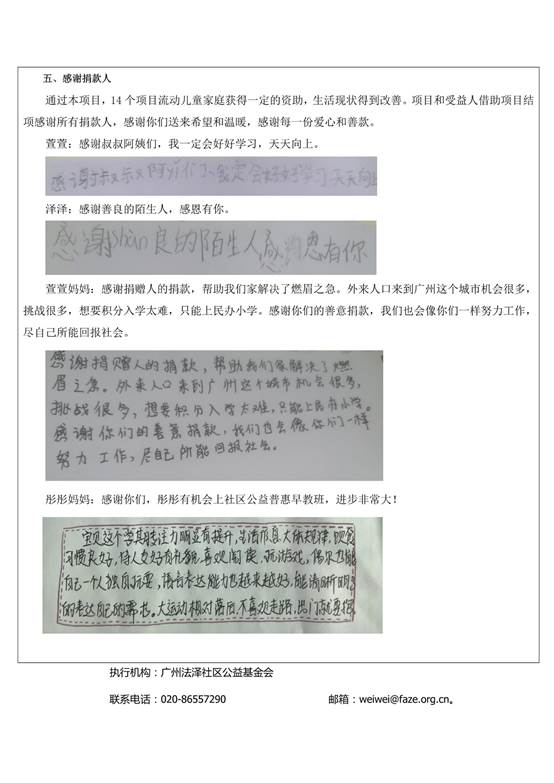 五、感谢捐款人
通过本项目，14 个项目流动儿童家庭获得一定的资助，生活现状得到改善。项目和受益人借助项目结
项感谢所有捐款人，感谢你们送来希望和温暖，感谢每一份爱心和善款。
萱萱：感谢叔叔阿姨们，我一定会好好学习，天天向上。
感谢叔叔阿姨们、我一定会好好学习天天向上
泽泽：感谢善良的陌生人，感恩有你。
感谢shàn良的陌生人感恩有你
萱萱妈妈：感谢捐赠人的捐款，帮助我们家解决了燃眉之急。外来人口来到广州这个城市机会很多，
挑战很多，想要积分入学太难，只能上民办小学。感谢你们的善意捐款，我们也会像你们一样努力工作，
尽自己所能回报社会。
感谢捐赠人的捐款，帮助我们家解决了燃
眉之急。外来人口来到广州这个城市机会很多，
挑战很多，想要积分入学太难，只能上民办小学。
感谢你们的善意捐款，我们也会像你们一样
努力工作，尽自己所能回报社会。
彤彤妈妈：感谢你们，彤彤有机会上社区公益普惠早教班，进步非常大！
宝贝这个学期专注力明显有提升，生活作息大体规律，饮食
习惯良好，待人友好有礼貌，喜欢阅读，玩游戏，偶尔也能
自己一个人独自玩耍，语言表达能力也越来越好，能清晰明了
的表达自己的需求，大运动相对落后，不喜欢走路，出门就要抱
执行机构：广州法泽社区公益基金会
联系电话：020-86557290 邮箱：weiwei@faze.org.cn。